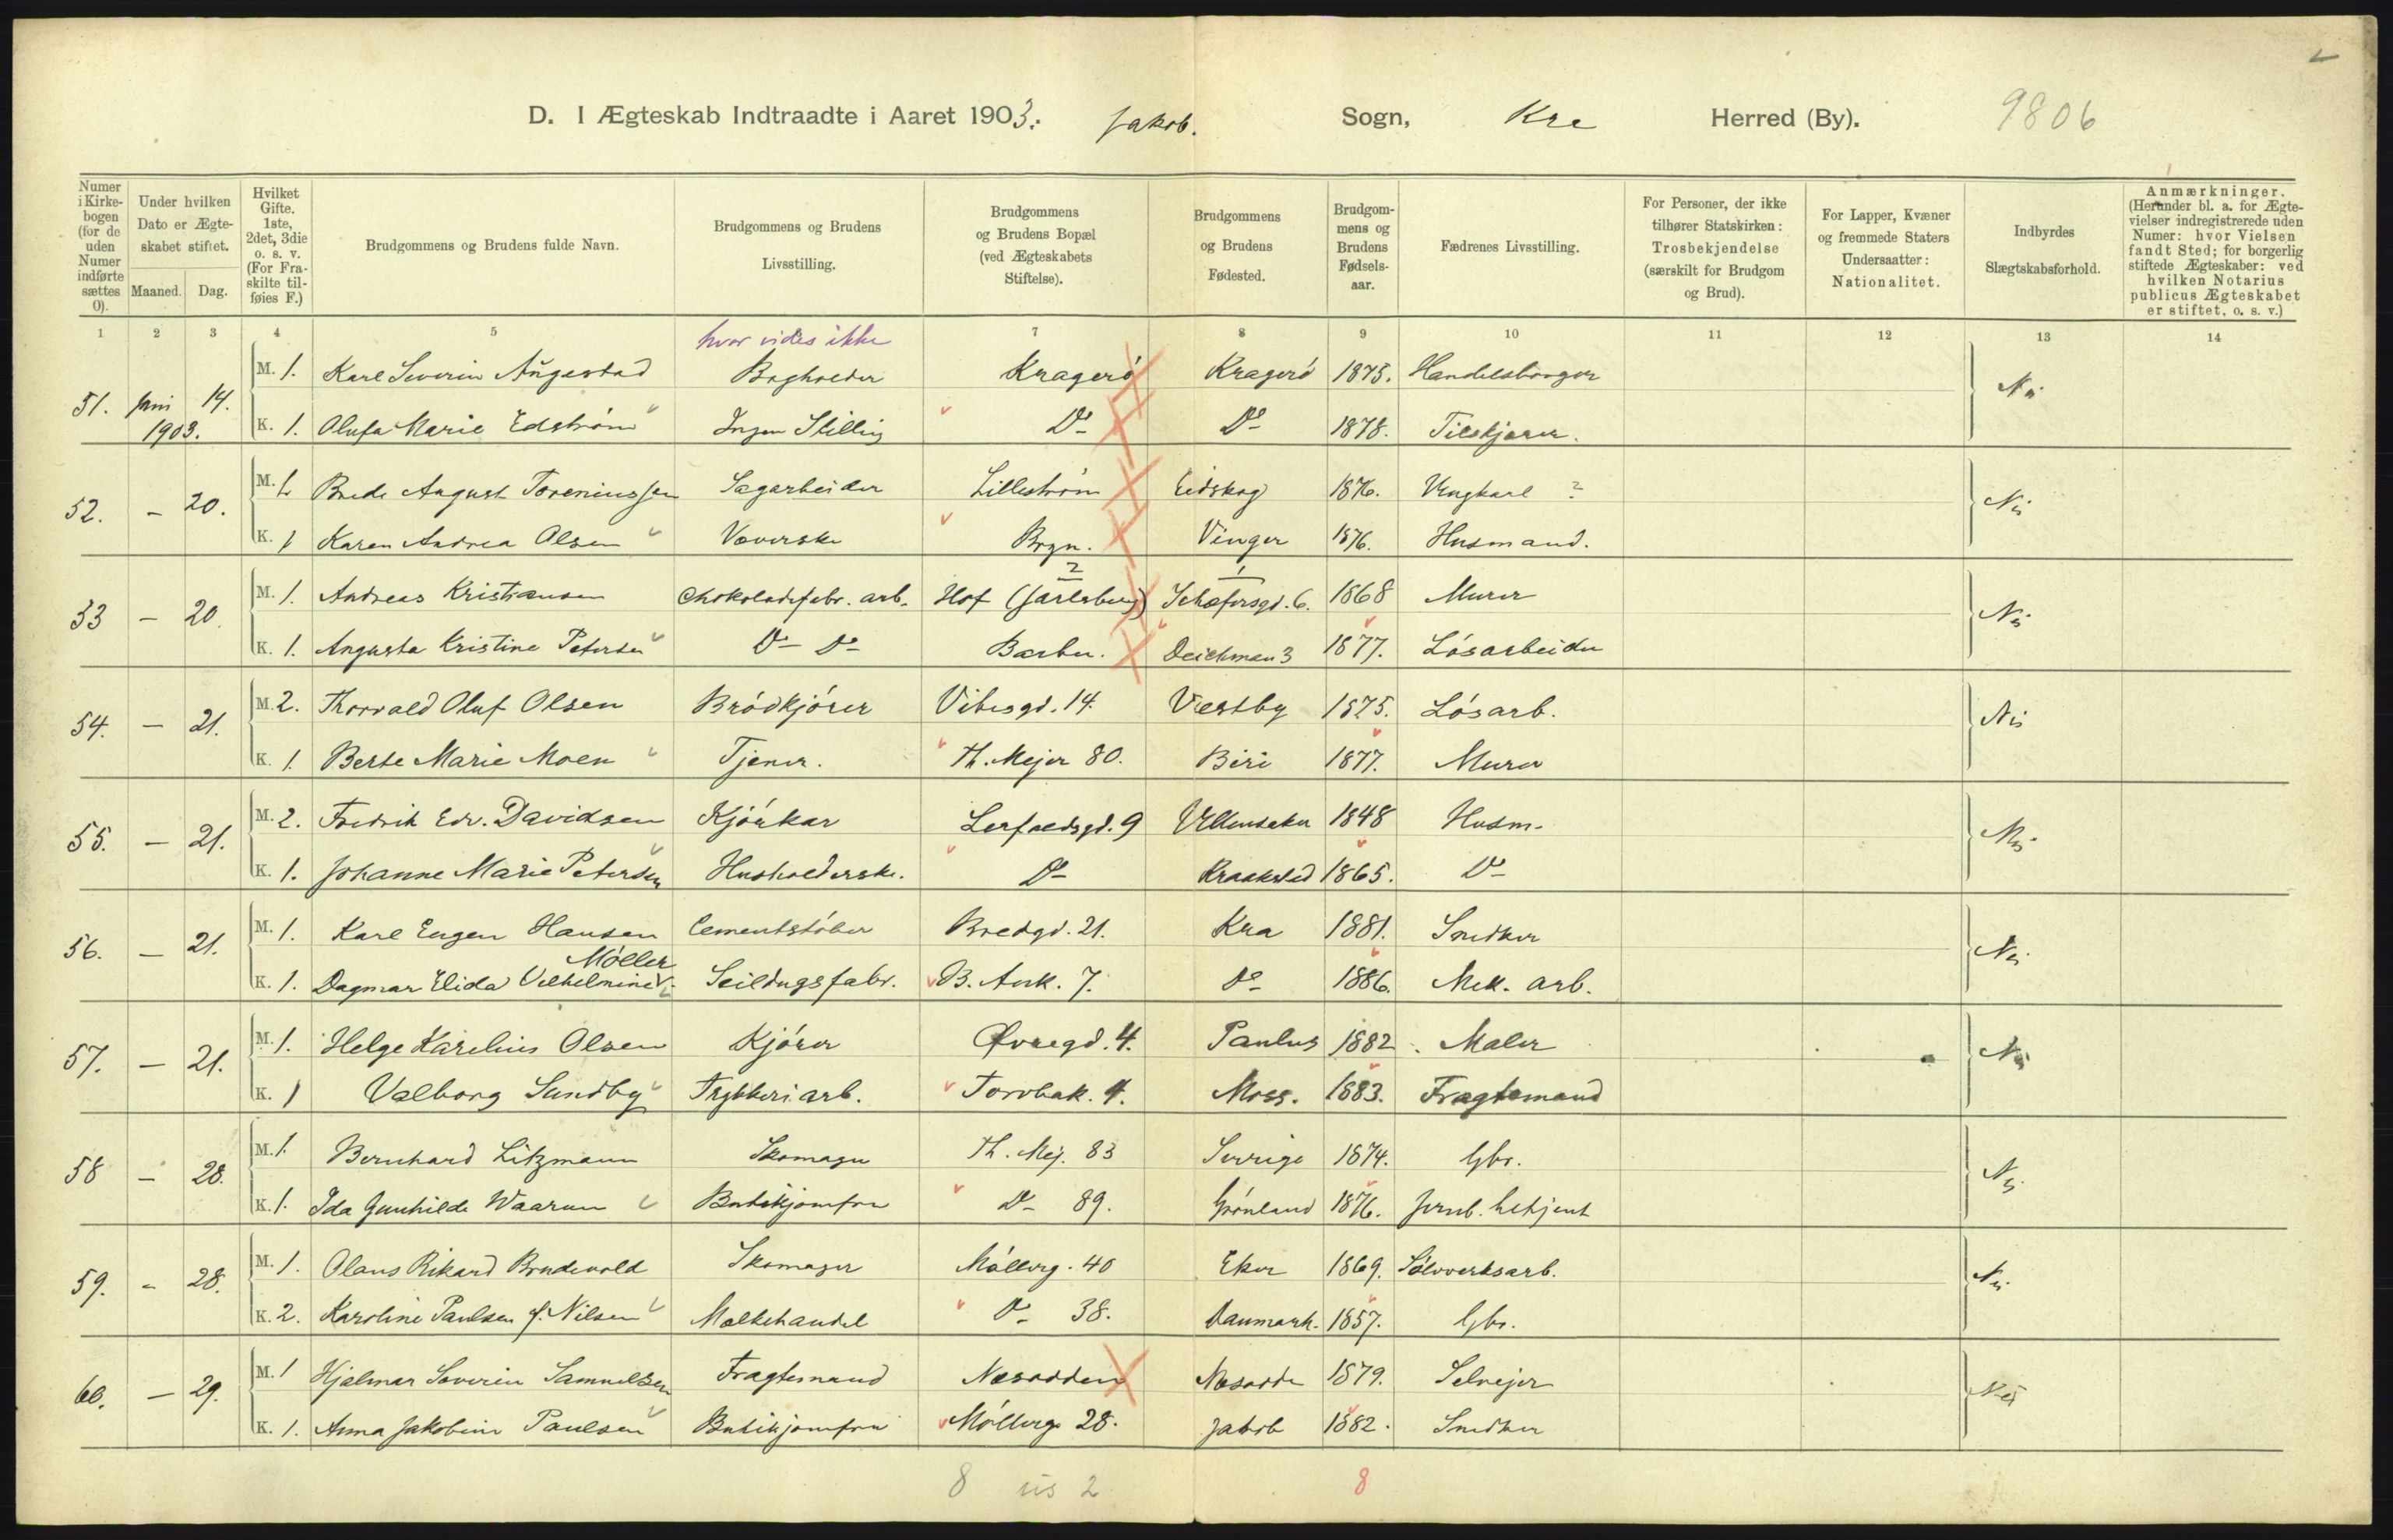 D. I Ægteskab Indtraadte i Aaret 1903. Jakob. Sogn, Kra Herred (By). 9806
Numer i Kirkebogen (for de uden Numer indførte sættes 0).
Under hvilken Dato er Ægteskabet stiftet.
Maaned. Dag.
Hvilket Gifte. 1ste, 2det, 3die o. s. v. (For Fraskilte tilføies F.)
Brudgommens og Brudens fulde Navn.
Brudgommens og Brudens Livsstilling.
Brudgommens og Brudens Bopæl (ved Ægteskabets Stiftelse).
Brudgommens og Brudens Fødested.
Brudgommens og Brudens Fødselsaar.
Fædrenes Livsstilling.
For Personer, der ikke tilhører Statskirken: Trosbekjendelse (særskilt for Brudgom og Brud).
For Lapper, Kvæner og fremmede Staters Undersaatter: Nationalitet.
Indbyrdes Slægtskabsforhold.
Anmærkninger. (Herunder bl. a. for Ægtevielser indregistrerede uden Numer: hvor Vielsen fandt Sted; for borgerlig stiftede Ægteskaber: ved hvilken Notarius publicus Ægteskabet er stiftet, o. s. v.)
1 2 3 4 5 7 8 9 10 11 12 13 14
hvor vides ikke
51. Juni 14. M. 1. Karl Severin Augestad Bogholder Kragerö Kragerö 1875. Handelsborger Nei
1903. K. 1. Olufa Marie Edström Ingen Stilling Do Do 1878. Tilskjærer.
52. - 20. M. 1. Brede August Toreniussen Sagarbeider Lilleström Eidskog 1876. Ungkarl ? Nei
K. 1 Karen Andrea Olsen Væverske Bryn. Vinger 1876. Husmand.
2 1
53 - 20. M. 1. Andreas Kristiansen Chokoladefabr. arb. Hof (Jarlsberg) Schæfersgd. 6. 1868 Murer Nei
K. 1. Augusta Kristine Petersen Do Do Barbu. Deichman 3 1877. Lösarbeider
54. - 21. M. 2. Thorvald Oluf Olsen Brödkjörer Vibesgd. 14. Vestby 1875. Lösarb. Nei
K. 1. Berte Marie Moen Tjener. Th. Mejer 80. Biri 1877. Murer
55. - 21. M. 2. Fredrik Edv. Davidsen Kjörkar Lerfaldsgd. 9 Ullensaker 1848 Husm. Nei
K. 1. Johanne Marie Petersen Husholderske. Do Kraakstad 1865. Do
56. - 21. M. 1. Karl Eugen Hansen Cementstöber Bredgd. 21. Kra 1881. Snedker Nei
Möller
K. 1. Dagmar Elida Vilhelmine Seildugsfabr. B. Ank. 7. Do 1886. Mek. arb.
57. - 21. M. 1. Helge Karelius Olsen Kjörer Øvregd. 4. Paulus 1882. Maler Nei
K. 1 Valborg Sundby Trykkeriarb. Torvbak. 4. Moss. 1883. Fragtemand
58 - 28. M. 1. Bernhard Litzmann Skomager Th. Mej. 83 Sverige 1874. Gbr. Nei
K. 1. Ida Gunhilde Waarum Butikjomfru Do 89. Grönland 1876. Jernb. betjent
59. - 28. M. 1. Olaus Rikard Brudevold Skomager Möllerg. 40 Eker 1869. Sölvverksarb. Nei
K. 2. Karoline Paulsen f. Nilsen Melkehandel Do 38. Danmark. 1857. Gbr.
60. - 29. M. 1 Hjalmar Severin Samuelsen Fragtemand Næsodden Næsodde 1879. Selvejer Nei
K. 1. Anna Jakobine Paulsen Butikjomfru Möllerg. 28. Jakob 1882. Snedker
8 2 8